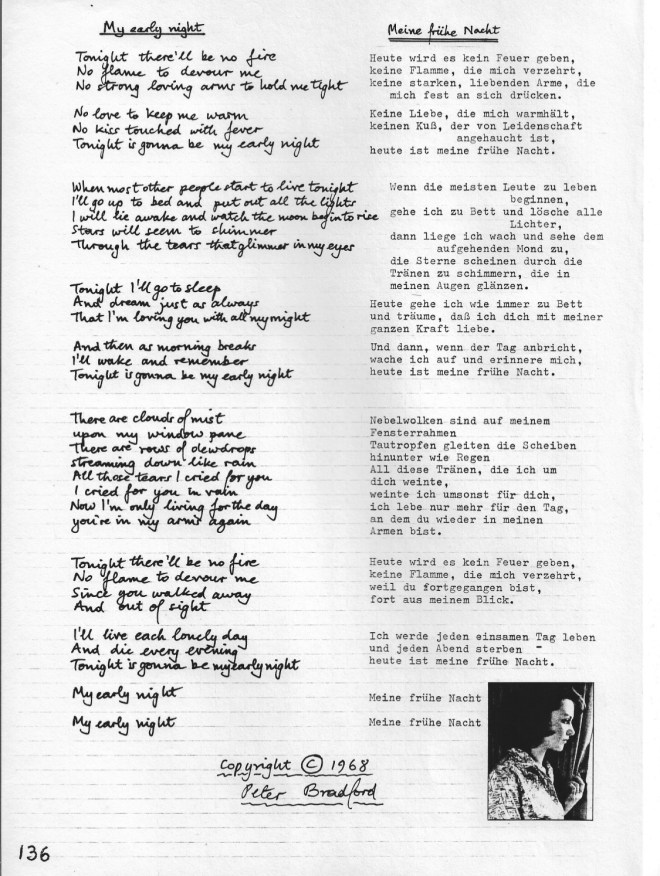 My early night
Tonight there'll be no fire
No flame to devour me
No strong loving arms to hold me tight
No love to keep me warm
No kiss touched with fever
Tonight is gonna be my early night
When most other people start to live tonight
I'll go up to bed and put out all the lights
I will lie awake and watch the moon begin to rise
Stars will seem to shimmer
Through the tears that glimmer in my eyes
Tonight I'll go to sleep
And dream just as always
That I'm loving you with all my might
And then as morning breaks
I'll wake and remember
Tonight is gonna be my early night
There are clouds of mist
upon my window pane
There are rows of dewdrops
streaming down like rain
All those tears I cried for you
I cried for you in vain
Now I'm only living for the day
you're in my arms again
Tonight there'll be no fire
No flame to devour me
Since you walked away
And out of sight
I'll live each lonely day
And die every evening
Tonight is gonna be my early night
My early night
My early night
Meine frühe Nacht
Heute wird es kein Feuer geben,
keine Flamme, die mich verzehrt,
keine starken, liebenden Arme, die
mich fest an sich drücken.
Keine Liebe, die mich warmhält,
keinen Kuß, der von Leidenschaft
angehaucht ist,
heute ist meine frühe Nacht.
Wenn die meisten Leute zu leben
beginnen,
gehe ich zu Bett und lösche alle
Lichter,
dann liege ich wach und sehe dem
aufgehenden Mond zu,
die Sterne scheinen durch die
Tränen zu schimmern, die in
meinen Augen glänzen.
Heute gehe ich wie immer zu Bett
und träume, daß ich dich mit meiner
ganzen Kraft liebe.
Und dann, wenn der Tag anbricht,
wache ich auf und erinnere mich,
heute ist meine frühe Nacht.
Nebelwolken sind auf meinem
Fensterrahmen
Tautropfen gleiten die Scheiben
hinunter wie Regen
All diese Tränen, die ich um
dich weinte,
weinte ich umsonst für dich,
ich lebe nur mehr für den Tag,
an dem du wieder in meinen
Armen bist.
Heute wird es kein Feuer geben,
keine Flamme, die mich verzehrt,
weil du fortgegangen bist,
fort aus meinem Blick.
Ich werde jeden einsamen Tag leben
und jeden Abend sterben -
heute ist meine frühe Nacht.
Meine frühe Nacht
Meine frühe Nacht
Copyright © 1968
Peter Bradford
136